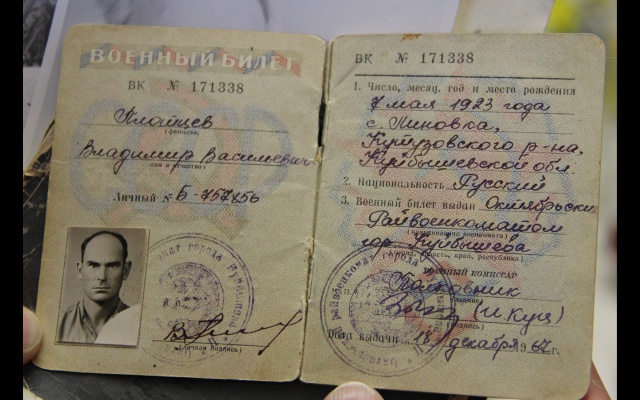 ВОЕННЫЙ БИЛЕТ
ВК № 171338
Плайцев
(фамилия,
Владимир Васильевич
имя и отчество)
Личный № Б-757856
(личная подпись)
ВК № 171338
1. Число, месяц, год и место рождения
7 мая 1923 года
с. Липовка,
Кутузовского р-на,
Куйбышевской обл.
2. Национальность Русский
3. Военный билет выдан Октябрьским
Райвоенкоматом
(наименование военкомата)
гор. Куйбышева
край, республика)
ВОЕННЫЙ КОМИССАР
Полковник
(звание)
(подпись)
Дата выдачи 18 декабря 1967 г.